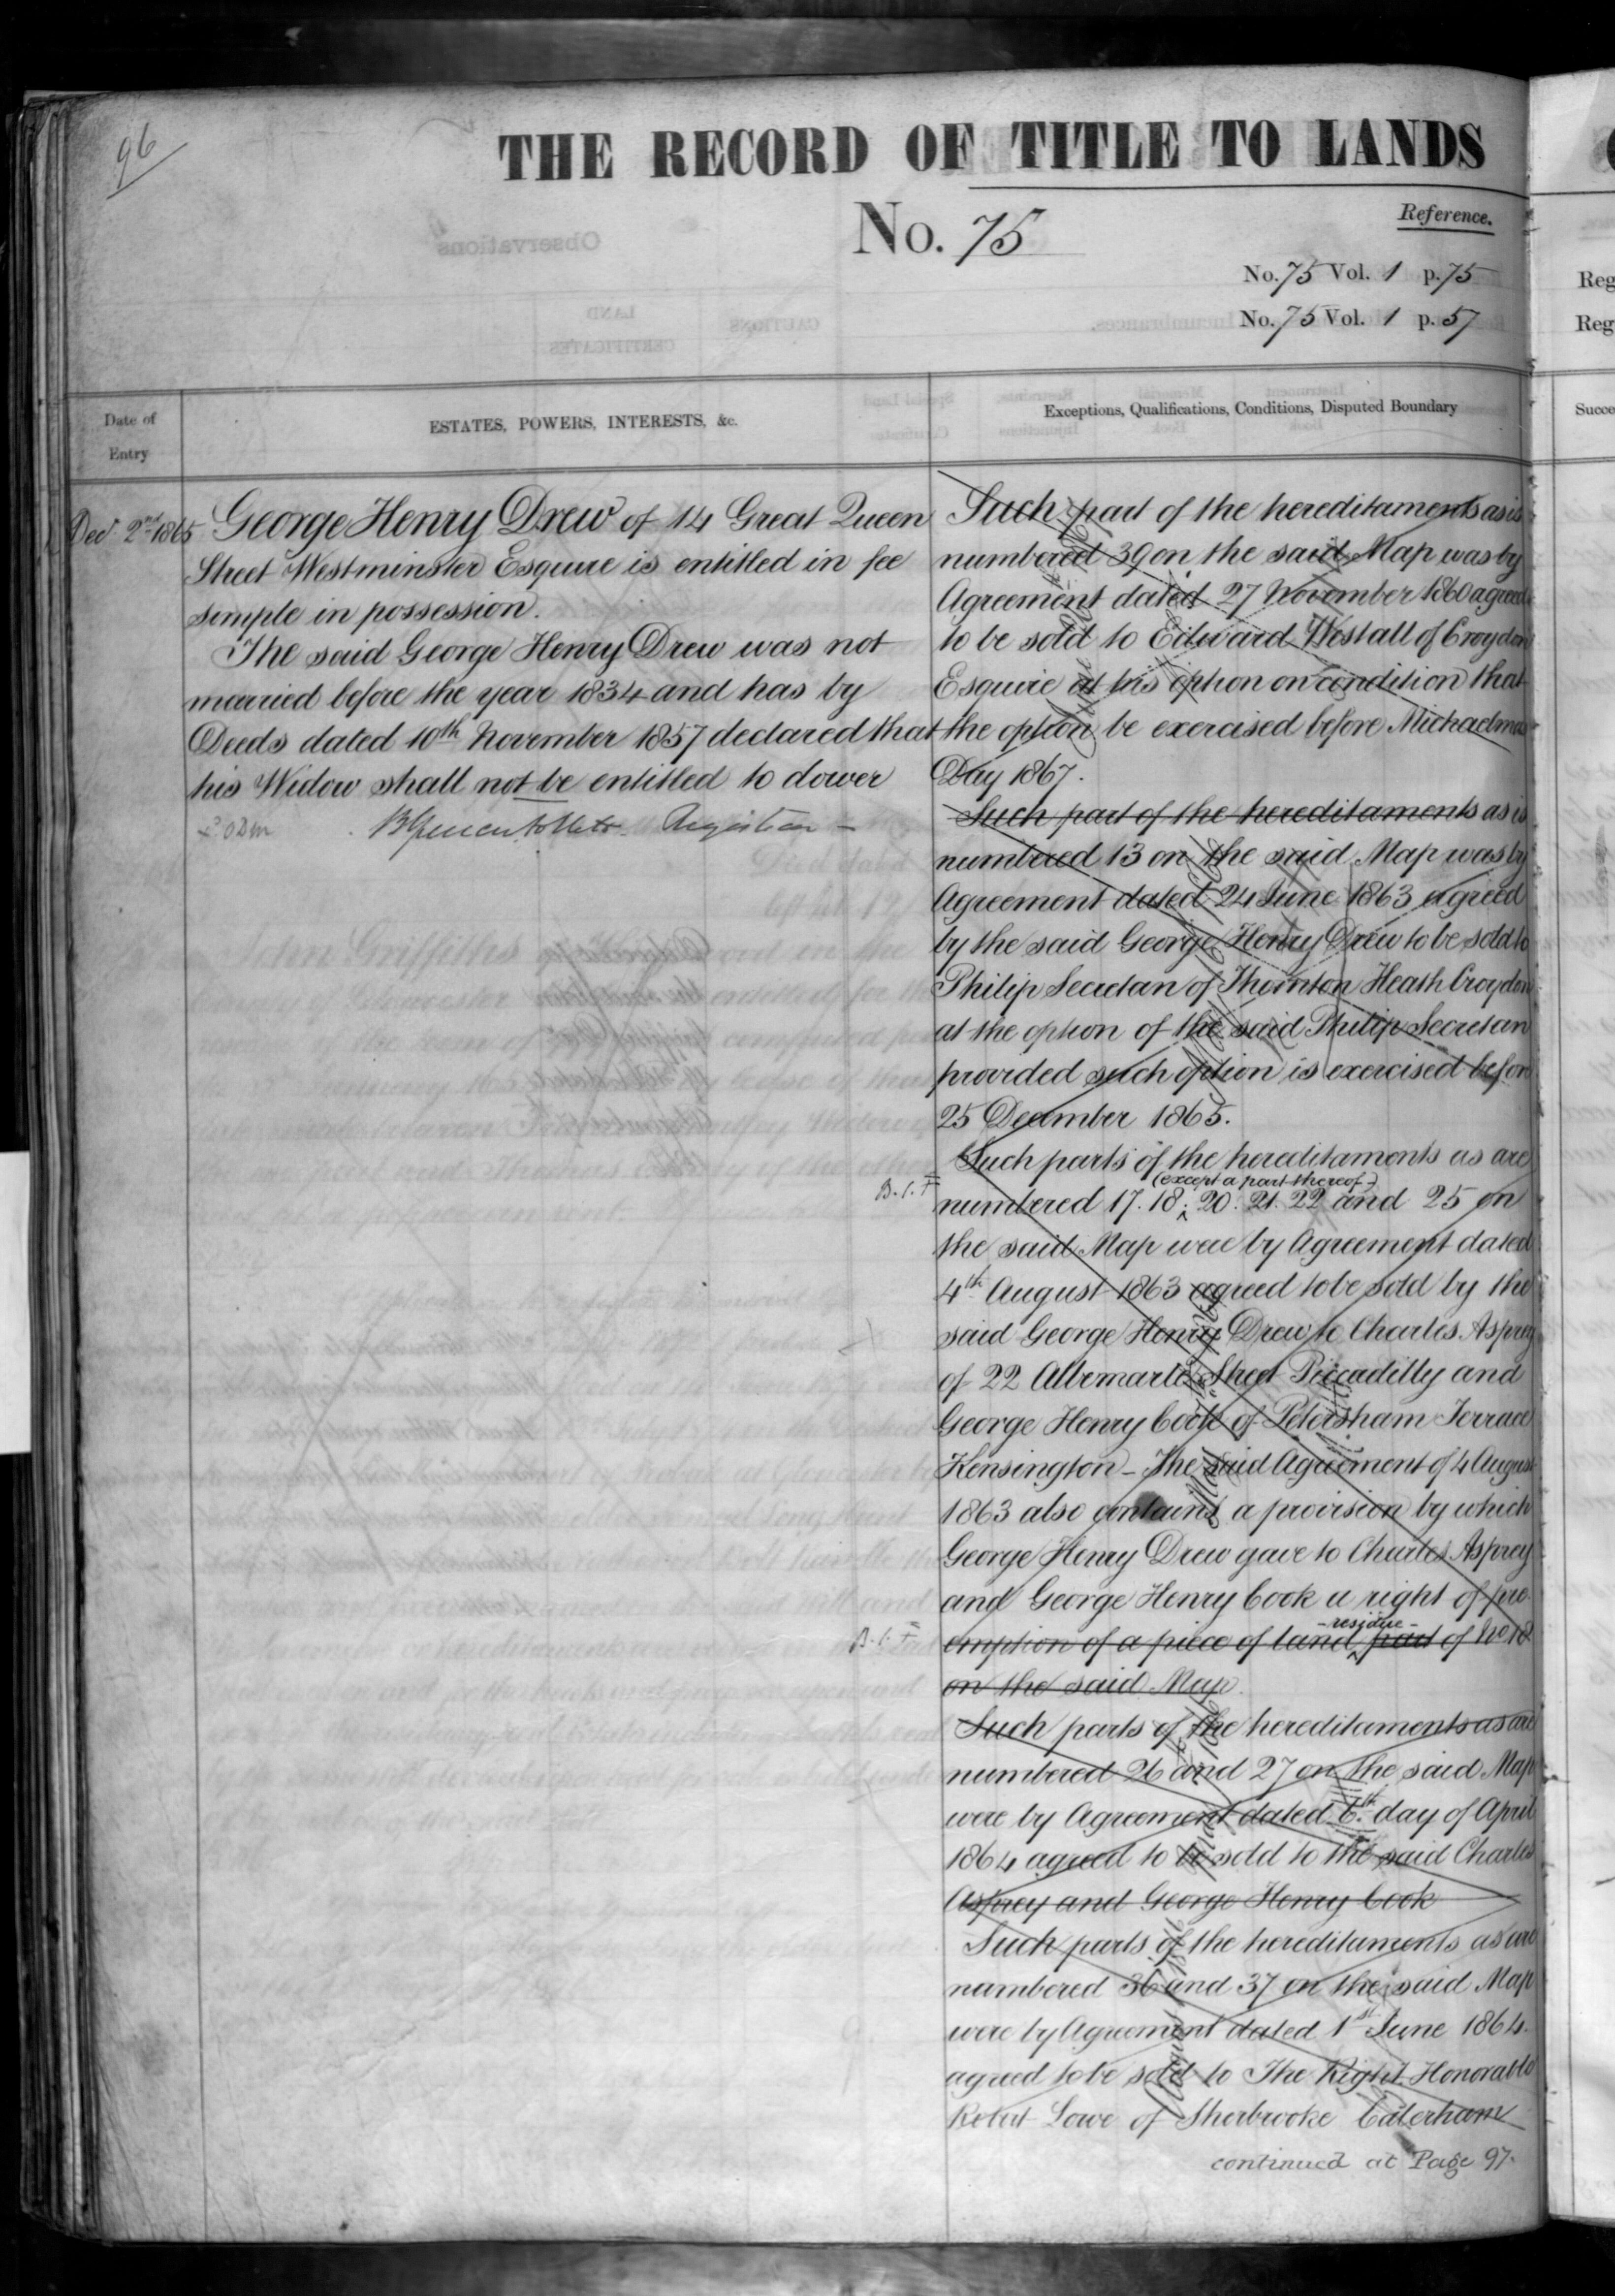 96
THE RECORD OF TITLE TO LANDS
No. 75
Reference.
No. 75 Vol. 1 p. 75
No. 75 Vol. 1 p. 57
Date of
Entry
ESTATES, POWERS, INTERESTS, &c.
Exceptions, Qualifications, Conditions, Disputed Boundary
Decr 2nd 1865
George Henry Drew of 14 Great Queen
Street Westminster Esquire is entitled in fee
simple in possession.
The said George Henry Drew was not
married before the year 1834 and has by
Deeds dated 10th November 1857 declared that
his Widow shall not be entitled to dower
Registrar
Such part of the hereditaments as is
numbered 39 on the said Map was by
Agreement dated 27 November 1860 agreed
to be sold to Edward Westall of Croydon
Esquire at his option on condition that
the option be exercised before Michaelmas
Day 1867.
Such part of the hereditaments as is
numbered 13 on the said Map was by
Agreement dated 24 June 1863 agreed
by the said George Henry Drew to be sold to
Philip Secretan of Thornton Heath Croydon
at the option of the said Philip Secretan
provided such option is exercised before
25 December 1865.
Such parts of the hereditaments as are
(except a part thereof)
numbered 17. 18. 20. 21. 22 and 25 on
the said Map were by Agreement dated
4th August 1863 agreed to be sold by the
said George Henry Drew to Charles Asprey
of 22 Albemarle Street Piccadilly and
George Henry Cook of Petersham Terrace
Kensington - The said Agreement of 4 August
1863 also contains a provision by which
George Henry Drew gave to Charles Asprey
and George Henry Cook a right of pre
-residue-
emption of a piece of land part of No 18
on the said Map.
Such parts of the hereditaments as are
numbered 26 and 27 on the said Map
were by Agreement dated 6th day of April
1864 agreed to be sold to the said Charles
Asprey and George Henry Cook
Such parts of the hereditaments as are
numbered 36 and 37 on the said Map
were by Agreement dated 1st June 1864.
agreed to be sold to The Right Honorable
Robert Lowe of Sherbrooke Caterham
continued at Page 97.
Reg
Reg
Succe